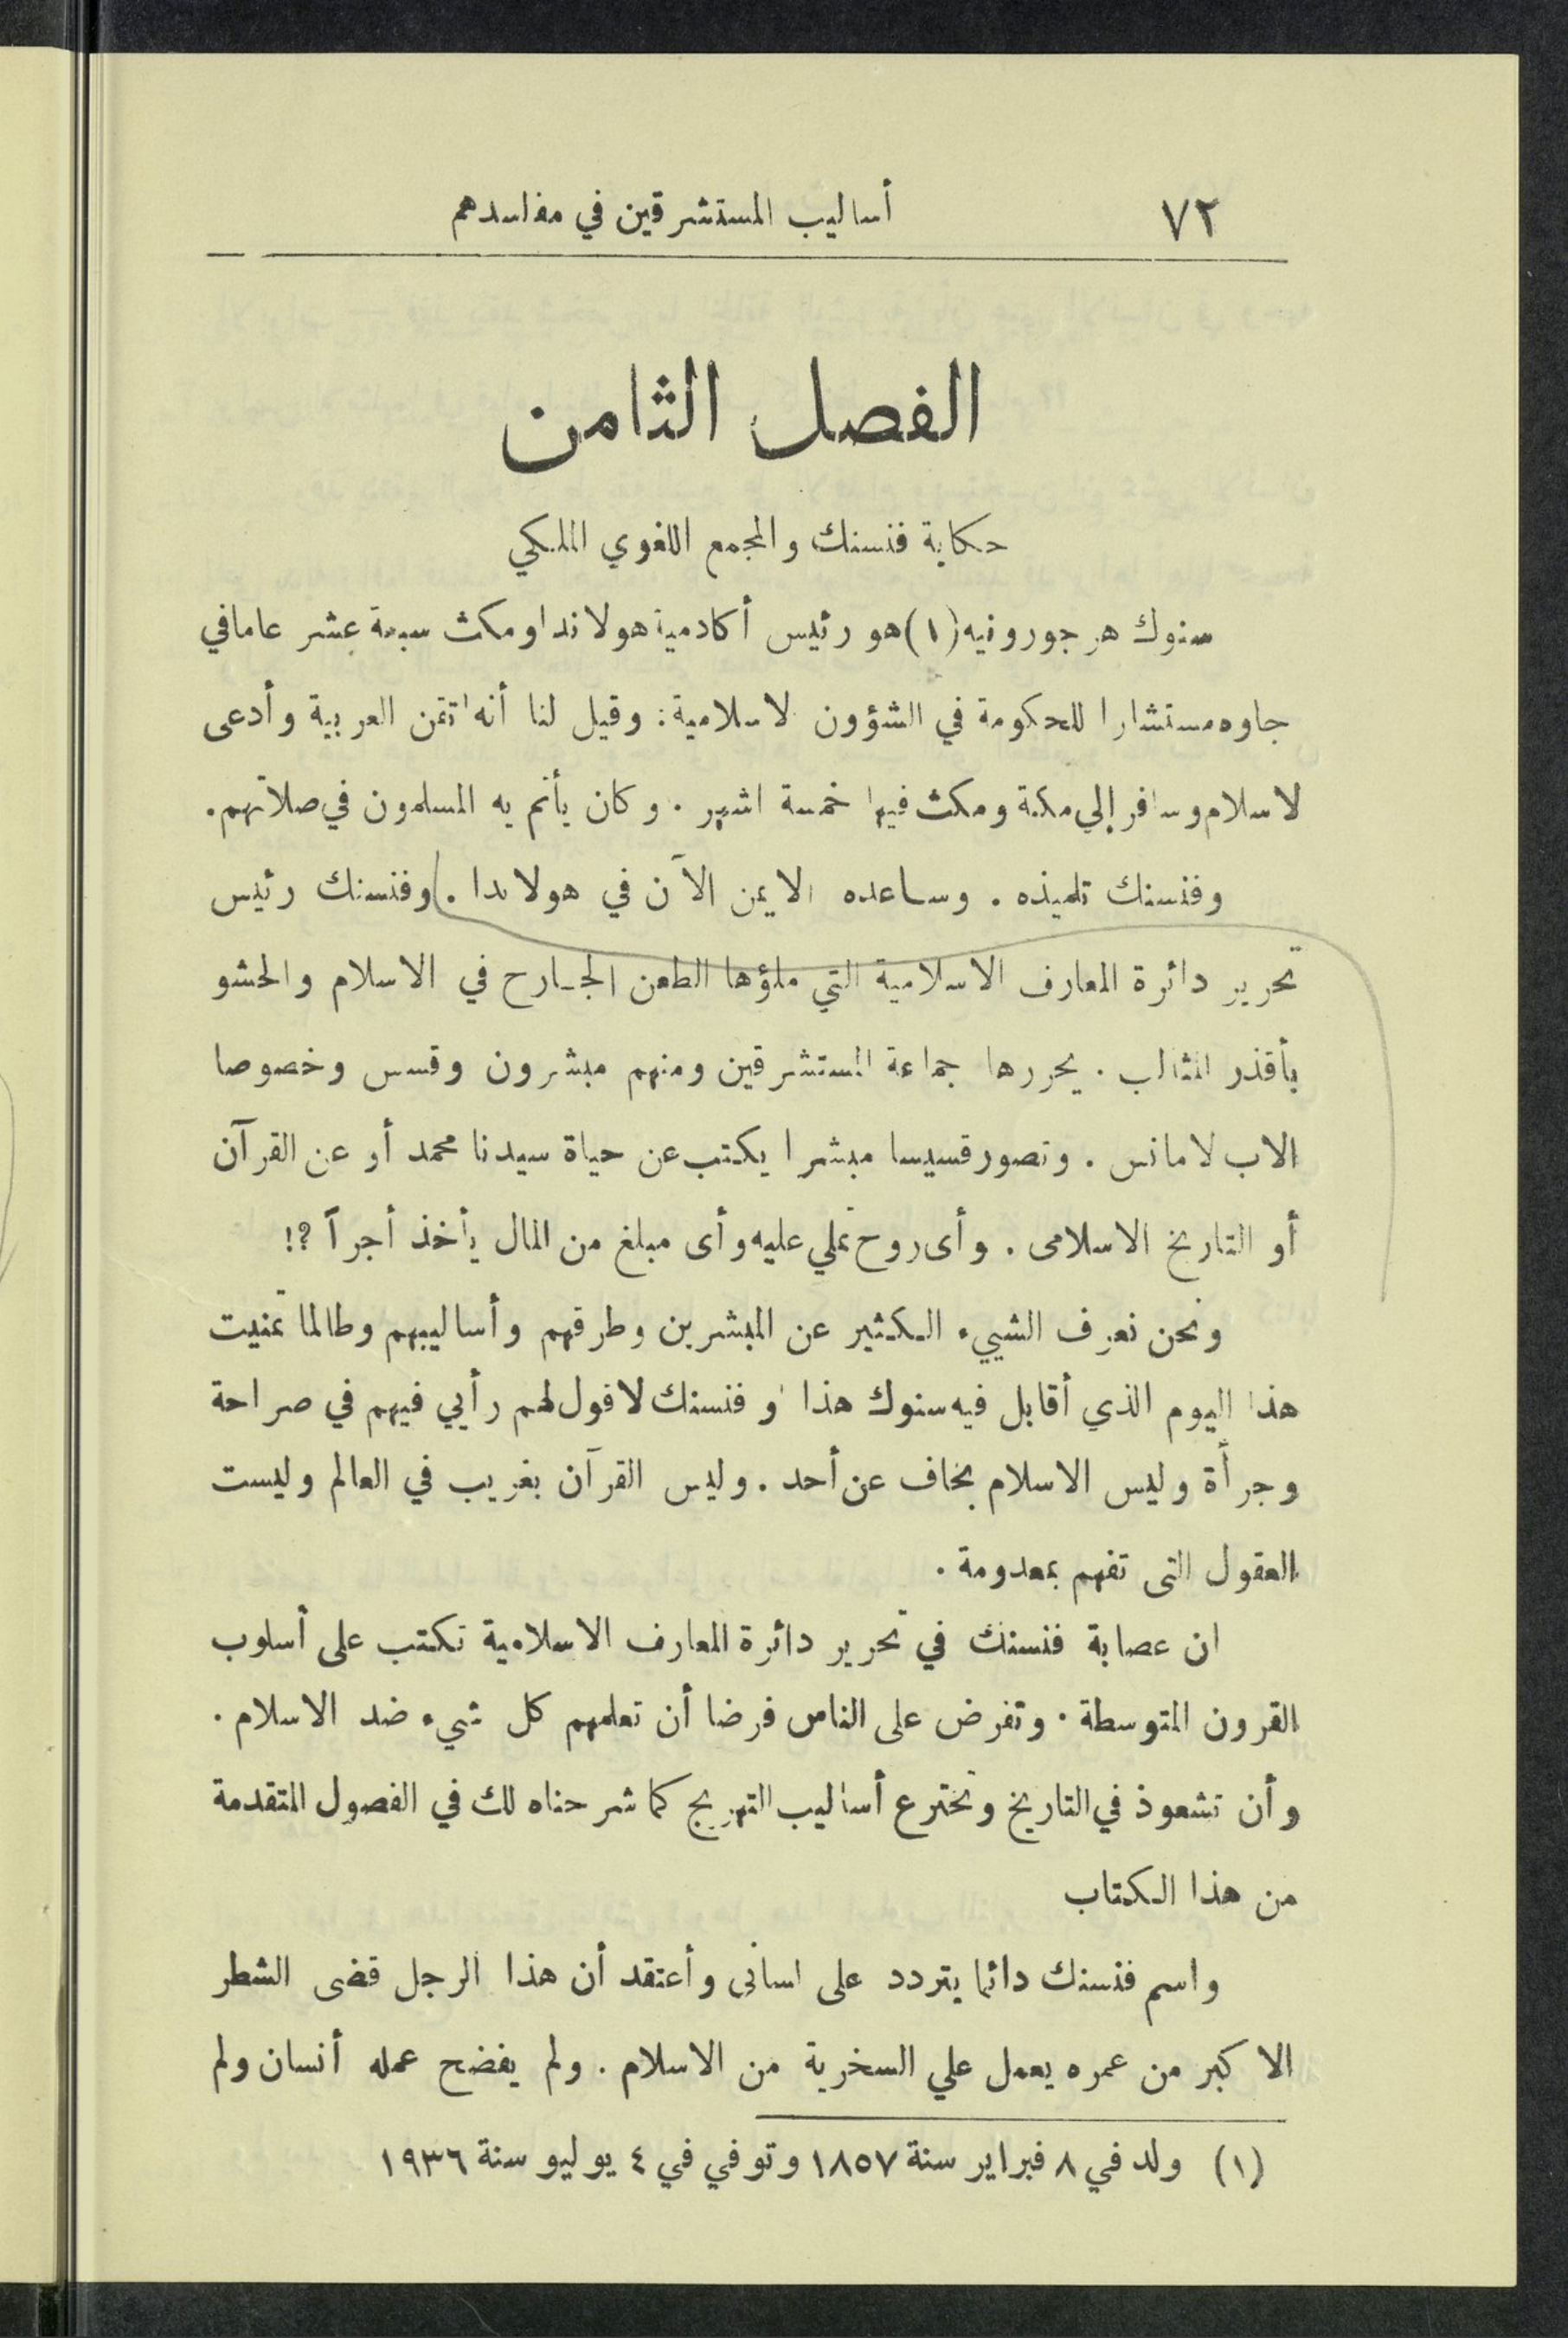 ٧٢ أساليب المستشرقين في مفاسدهم
الفصل الثامن
حكاية فنسنك والمجمع اللغوي الملكي
سنوك هرجورونيه (١) هو رئيس أكادمية هولاندا ومكث سبعة عشر عاما في
جاوه مستشارا للحكومة في الشؤون لاسلامية : وقيل لنا أنه اتقن العربية وأدعى
لاسلام وسافر إلي مكة ومكث فيها خمسة اشهر . وكان يأتم به المسلمون في صلاتهم .
وفنسنك تلميذه . وساعده الايمن الآن في هولاندا . وفنسنك رئيس
تحرير دائرة المعارف الاسلامية التي ملؤها الطعن الجارح في الاسلام والحشو
بأقذر المثالب . يحررها جماعة المستشرقين ومنهم مبشرون وقسس وخصوصا
الاب لامانس . وتصور قسيسا مبشرا يكتب عن حياة سيدنا محمد أو عن القرآن
أو التاريخ الاسلامى . وأى روح تملي عليه وأى مبلغ من المال يأخذ أجراً ؟!
ونحن نعرف الشييء الكثير عن المبشرين وطرقهم وأساليبهم وطالما تمنيت
هذا اليوم الذي أقابل فيه سنوك هذا أو فنسنك لاقول لهم رأيي فيهم في صراحة
وجرأة وليس الاسلام بخاف عن أحد . وليس القرآن بغريب في العالم وليست
العقول التى تفهم بمعدومة .
ان عصابة فنسنك في تحرير دائرة المعارف الاسلامية تكتب على أسلوب
القرون المتوسطة . وتفرض على الناس فرضا أن تعلمهم كل شيء ضد الاسلام .
وأن تشعوذ في التاريخ وتخترع أساليب التهريج كما شرحناه لك في الفصول المتقدمة
من هذا الكتاب
واسم فنسنك دائما يتردد على لسانى وأعتقد أن هذا الرجل قضى الشطر
الاكبر من عمره يعمل علي السخرية من الاسلام . ولم يفضح عمله أنسان ولم
(١) ولد في ٨ فبراير سنة ١٨٥٧ وتوفي في ٤ يوليو سنة ١٩٣٦